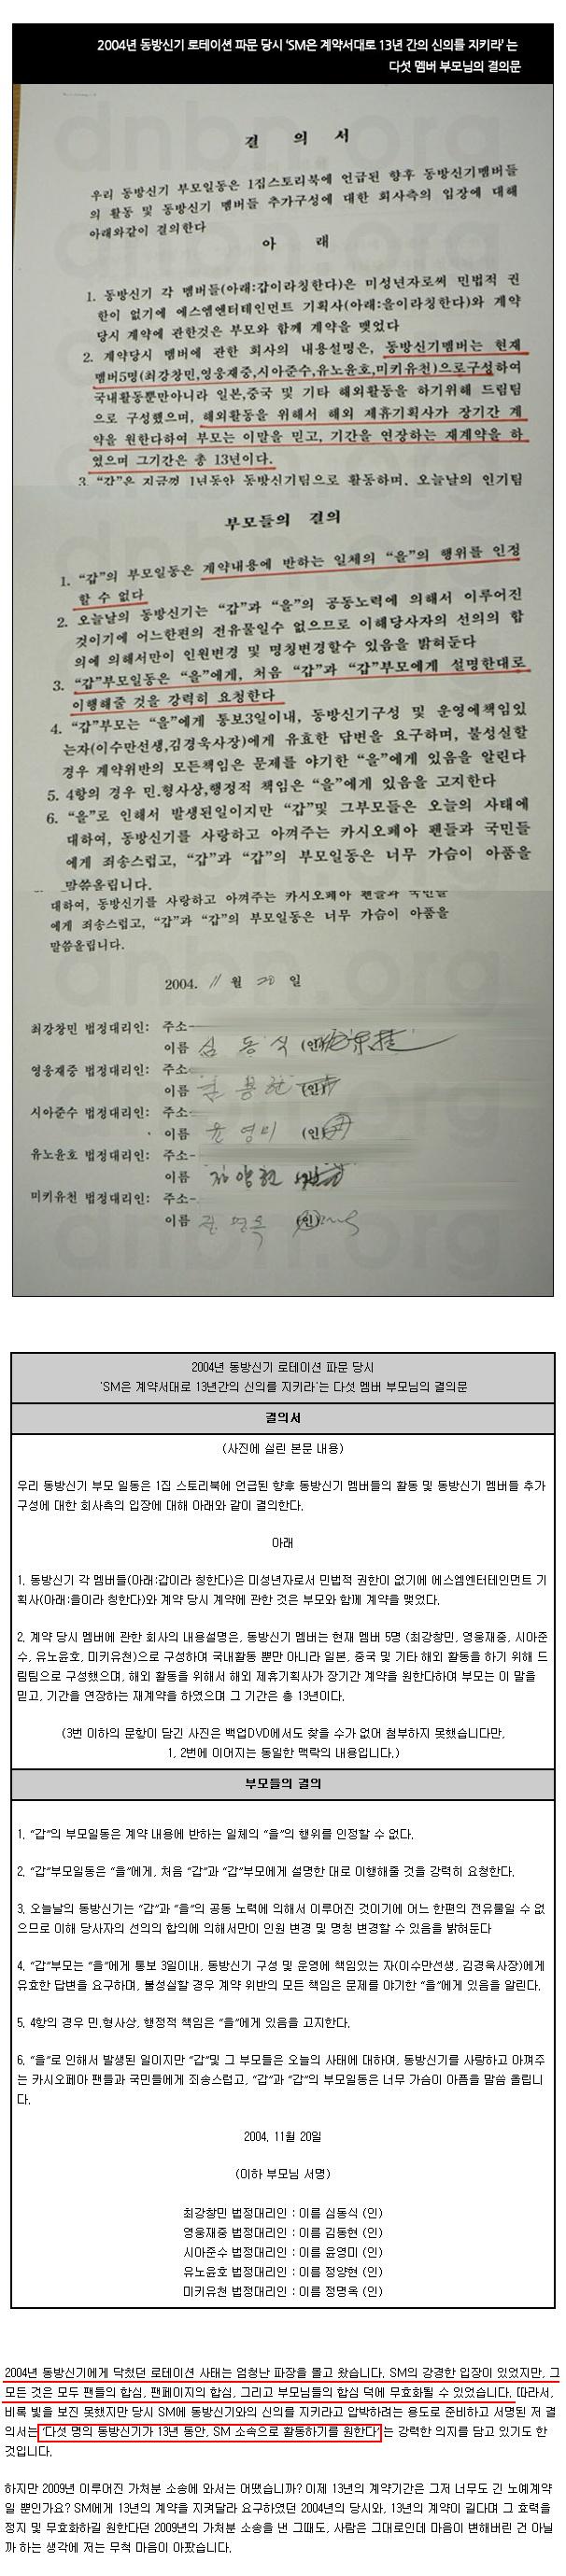 2004년 동방신기 로테이션 파문 당시 'SM은 계약서대로 13년 간의 신의를 지키라' 는
다섯 멤버 부모님의 결의문
dnbn.org
결 의 서
우리 동방신기 부모일동은 1집스토리북에 언급된 향후 동방신기멤버들
의 활동 및 동방신기 멤버들 추가구성에 대한 회사측의 입장에 대해
아래와같이 결의한다
아 래
1. 동방신기 각 멤버들(아래:갑이라칭한다)은 미성년자로써 민법적 권
한이 없기에 에스엠엔터테인먼트 기획사(아래:을이라칭한다)와 계약
당시 계약에 관한것은 부모와 함께 계약을 맺었다
2. 계약당시 멤버에 관한 회사의 내용설명은, 동방신기멤버는 현재
멤버5명(최강창민,영웅재중,시아준수,유노윤호,미키유천)으로구성하여
국내활동뿐만아니라 일본,중국 및 기타 해외활동을 하기위해 드림팀
으로 구성했으며, 해외활동을 위해서 해외 제휴기획사가 장기간 계
약을 원한다하여 부모는 이말을 믿고, 기간을 연장하는 재계약을 하
였으며 그기간은 총 13년이다.
3. "갑"은 지금껏 1년동안 동방신기팀으로 활동하며, 오늘날의 인기팀
부모들의 결의
1. "갑"의 부모일동은 계약내용에 반하는 일체의 "을"의 행위를 인정
할 수 없다
2. 오늘날의 동방신기는 "갑"과 "을"의 공동노력에 의해서 이루어진
것이기에 어느한편의 전유물일수 없으므로 이해당사자의 선의의 합
의에 의해서만이 인원변경 및 명칭변경할수 있음을 밝혀둔다
3. "갑"부모일동은 "을"에게, 처음 "갑"과 "갑"부모에게 설명한대로
이행해줄 것을 강력히 요청한다
4. "갑"부모는 "을"에게 통보3일이내, 동방신기구성 및 운영에책임있
는자(이수만선생,김경욱사장)에게 유효한 답변을 요구하며, 불성실할
경우 계약위반의 모든책임은 문제를 야기한 "을"에게 있음을 알린다
5. 4항의 경우 민.형사상,행정적 책임은 "을"에게 있음을 고지한다
6. "을"로 인해서 발생된일이지만 "갑"및 그부모들은 오늘의 사태에
대하여, 동방신기를 사랑하고 아껴주는 카시오페아 팬들과 국민들
에게 죄송스럽고, "갑"과 "갑"의 부모일동은 너무 가슴이 아픔을
말씀올립니다.
대하여, 동방신기를 사랑하고 아껴주는 카시오페아 팬들과 국민들
에게 죄송스럽고, "갑"과 "갑"의 부모일동은 너무 가슴이 아픔을
말씀올립니다.
2004. 11 월 20 일
최강창민 법정대리인: 주소
이름 심 동 식 (인)
영웅재중 법정대리인: 주소
이름 (인)
시아준수 법정대리인: 주소
이름 윤 영 미 (인)
유노윤호 법정대리인: 주소
이름 정 양 현
미키유천 법정대리인: 주소
이름 (인)
2004년 동방신기 로테이션 파문 당시
'SM은 계약서대로 13년간의 신의를 지키라'는 다섯 멤버 부모님의 결의문
결의서
(사진에 실린 본문 내용)
우리 동방신기 부모 일동은 1집 스토리북에 언급된 향후 동방신기 멤버들의 활동 및 동방신기 멤버들 추가
구성에 대한 회사측의 입장에 대해 아래와 같이 결의한다.
아래
1. 동방신기 각 멤버들(아래:갑이라 칭한다)은 미성년자로서 민법적 권한이 없기에 에스엠엔터테인먼트 기
획사(아래:을이라 칭한다)와 계약 당시 계약에 관한 것은 부모와 함께 계약을 맺었다.
2. 계약 당시 멤버에 관한 회사의 내용설명은, 동방신기 멤버는 현재 멤버 5명 (최강창민, 영웅재중, 시아준
수, 유노윤호, 미키유천)으로 구성하여 국내활동 뿐만 아니라 일본, 중국 및 기타 해외 활동을 하기 위해 드
림팀으로 구성했으며, 해외 활동을 위해서 해외 제휴기획사가 장기간 계약을 원한다하여 부모는 이 말을
믿고, 기간을 연장하는 재계약을 하였으며 그 기간은 총 13년이다.
(3번 이하의 문항이 담긴 사진은 백업DVD에서도 찾을 수가 없어 첨부하지 못했습니다만,
1, 2번에 이어지는 동일한 맥락의 내용입니다.)
부모들의 결의
1. "갑"의 부모일동은 계약 내용에 반하는 일체의 "을"의 행위를 인정할 수 없다.
2. "갑"부모일동은 "을"에게, 처음 "갑"과 "갑"부모에게 설명한 대로 이행해줄 것을 강력히 요청한다.
3. 오늘날의 동방신기는 "갑"과 "을"의 공동 노력에 의해서 이루어진 것이기에 어느 한편의 전유물일 수 없
으므로 이해 당사자의 선의의 합의에 의해서만이 인원 변경 및 명칭 변경할 수 있음을 밝혀둔다
4. "갑"부모는 "을"에게 통보 3일이내, 동방신기 구성 및 운영에 책임있는 자(이수만선생, 김경욱사장)에게
유효한 답변을 요구하며, 불성실할 경우 계약 위반의 모든 책임은 문제를 야기한 "을"에게 있음을 알린다.
5. 4항의 경우 민.형사상, 행정적 책임은 "을"에게 있음을 고지한다.
6. "을"로 인해서 발생된 일이지만 "갑"및 그 부모들은 오늘의 사태에 대하여, 동방신기를 사랑하고 아껴주
는 카시오페아 팬들과 국민들에게 죄송스럽고, "갑"과 "갑"의 부모일동은 너무 가슴이 아픔을 말씀 올립니
다.
2004. 11월 20일
(이하 부모님 서명)
최강창민 법정대리인 : 이름 심동식 (인)
영웅재중 법정대리인 : 이름 김동현 (인)
시아준수 법정대리인 : 이름 윤영미 (인)
유노윤호 법정대리인 : 이름 정양현 (인)
미키유천 법정대리인 : 이름 정명옥 (인)
2004년 동방신기에게 닥쳤던 로테이션 사태는 엄청난 파장을 몰고 왔습니다. SM의 강경한 입장이 있었지만, 그
모든 것은 모두 팬들의 합심, 팬페이지의 합심, 그리고 부모님들의 합심 덕에 무효화될 수 있었습니다. 따라서,
비록 빛을 보진 못했지만 당시 SM에 동방신기와의 신의를 지키라고 압박하려는 용도로 준비하고 서명된 저 결
의서는 '다섯 명의 동방신기가 13년 동안, SM 소속으로 활동하기를 원한다'는 강력한 의지를 담고 있기도 한
것입니다.
하지만 2009년 이루어진 가처분 소송에 와서는 어땠습니까? 이제 13년의 계약기간은 그저 너무도 긴 노예계약
일 뿐인가요? SM에게 13년의 계약을 지켜달라 요구하였던 2004년의 당시와, 13년의 계약이 길다며 그 효력을
정지 및 무효화하길 원한다던 2009년의 가처분 소송을 낸 그때도, 사람은 그대로인데 마음이 변해버린 건 아닐
까 하는 생각에 저는 무척 마음이 아팠습니다.